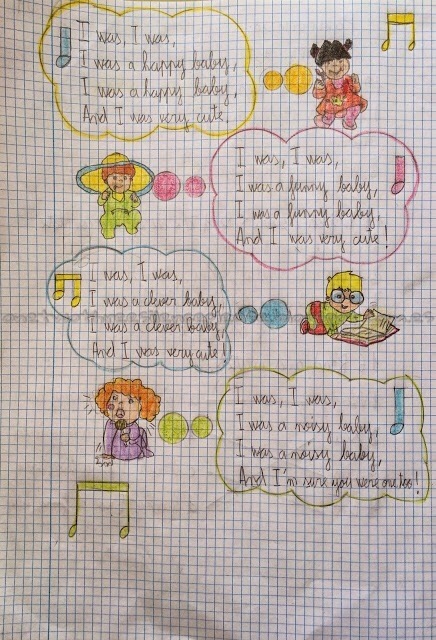 I was, I was,
I was a happy baby,
I was a happy baby,
And I was very cute.
I was, I was,
I was a funny baby,
I was a funny baby,
And I was very cute!
I was, I was,
I was a clever baby,
I was a clever baby,
And I was very cute!
I was, I was,
I was a noisy baby,
I was a noisy baby,
And I'm sure you were one too!